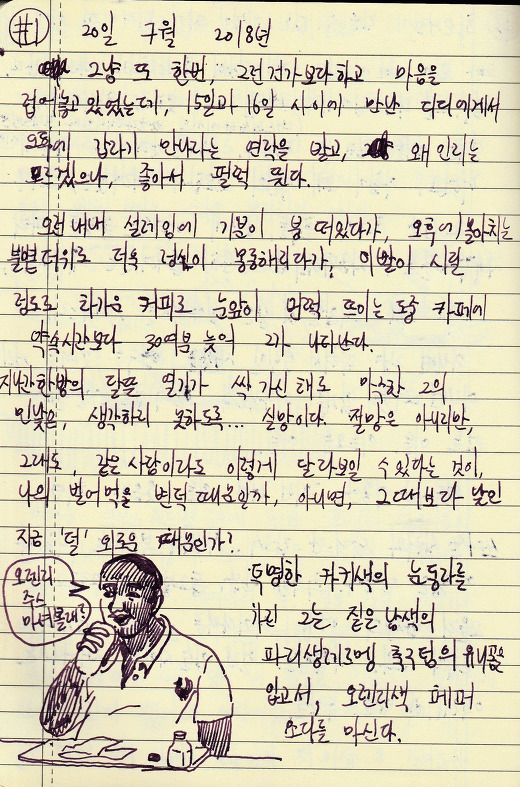 #1 20일 7월 2018년
그냥 또 한번, 그런건가보다하고 마음을
접어놓고 있었는데, 15일과 16일 사이에 만난 디디에게서
오후에 갑자기 만나자는 연락을 받고, 왜인지는
모르겠으나, 좋아서 펄쩍 뛴다.
오전내내 설레임에 기분이 붕 떠있다가, 오후에 불어치는
불볕더위로 더욱 정신이 몽롱해지다가, 이빨이 시릴
정도로 차가운 커피로 눈앞이 번쩍 뜨이는 도중 카페에
약속시간보다 30여분 늦어 그가 나타난다.
지나간 한밤의 달뜬 열기가 싹 가신 채로 마주한 그의
민낯은, 생각하지 못하도록... 실망이다. 절망은 아니지만,
그래도, 같은 사람이라도 이렇게 달라보일 수 있다는 것이,
나의 빌어먹을 변덕 때문일까, 아니면, 그때보다 낮인
지금 '덜' 외로운 때문인가?
오렌지
주스
마셔볼래?
투명한 카키색의 눈동자를
가진 그는 짙은 남색의
파리생제르멩 축구팀의 유니폼을
입고서, 오렌지색 페퍼
소다를 마신다.